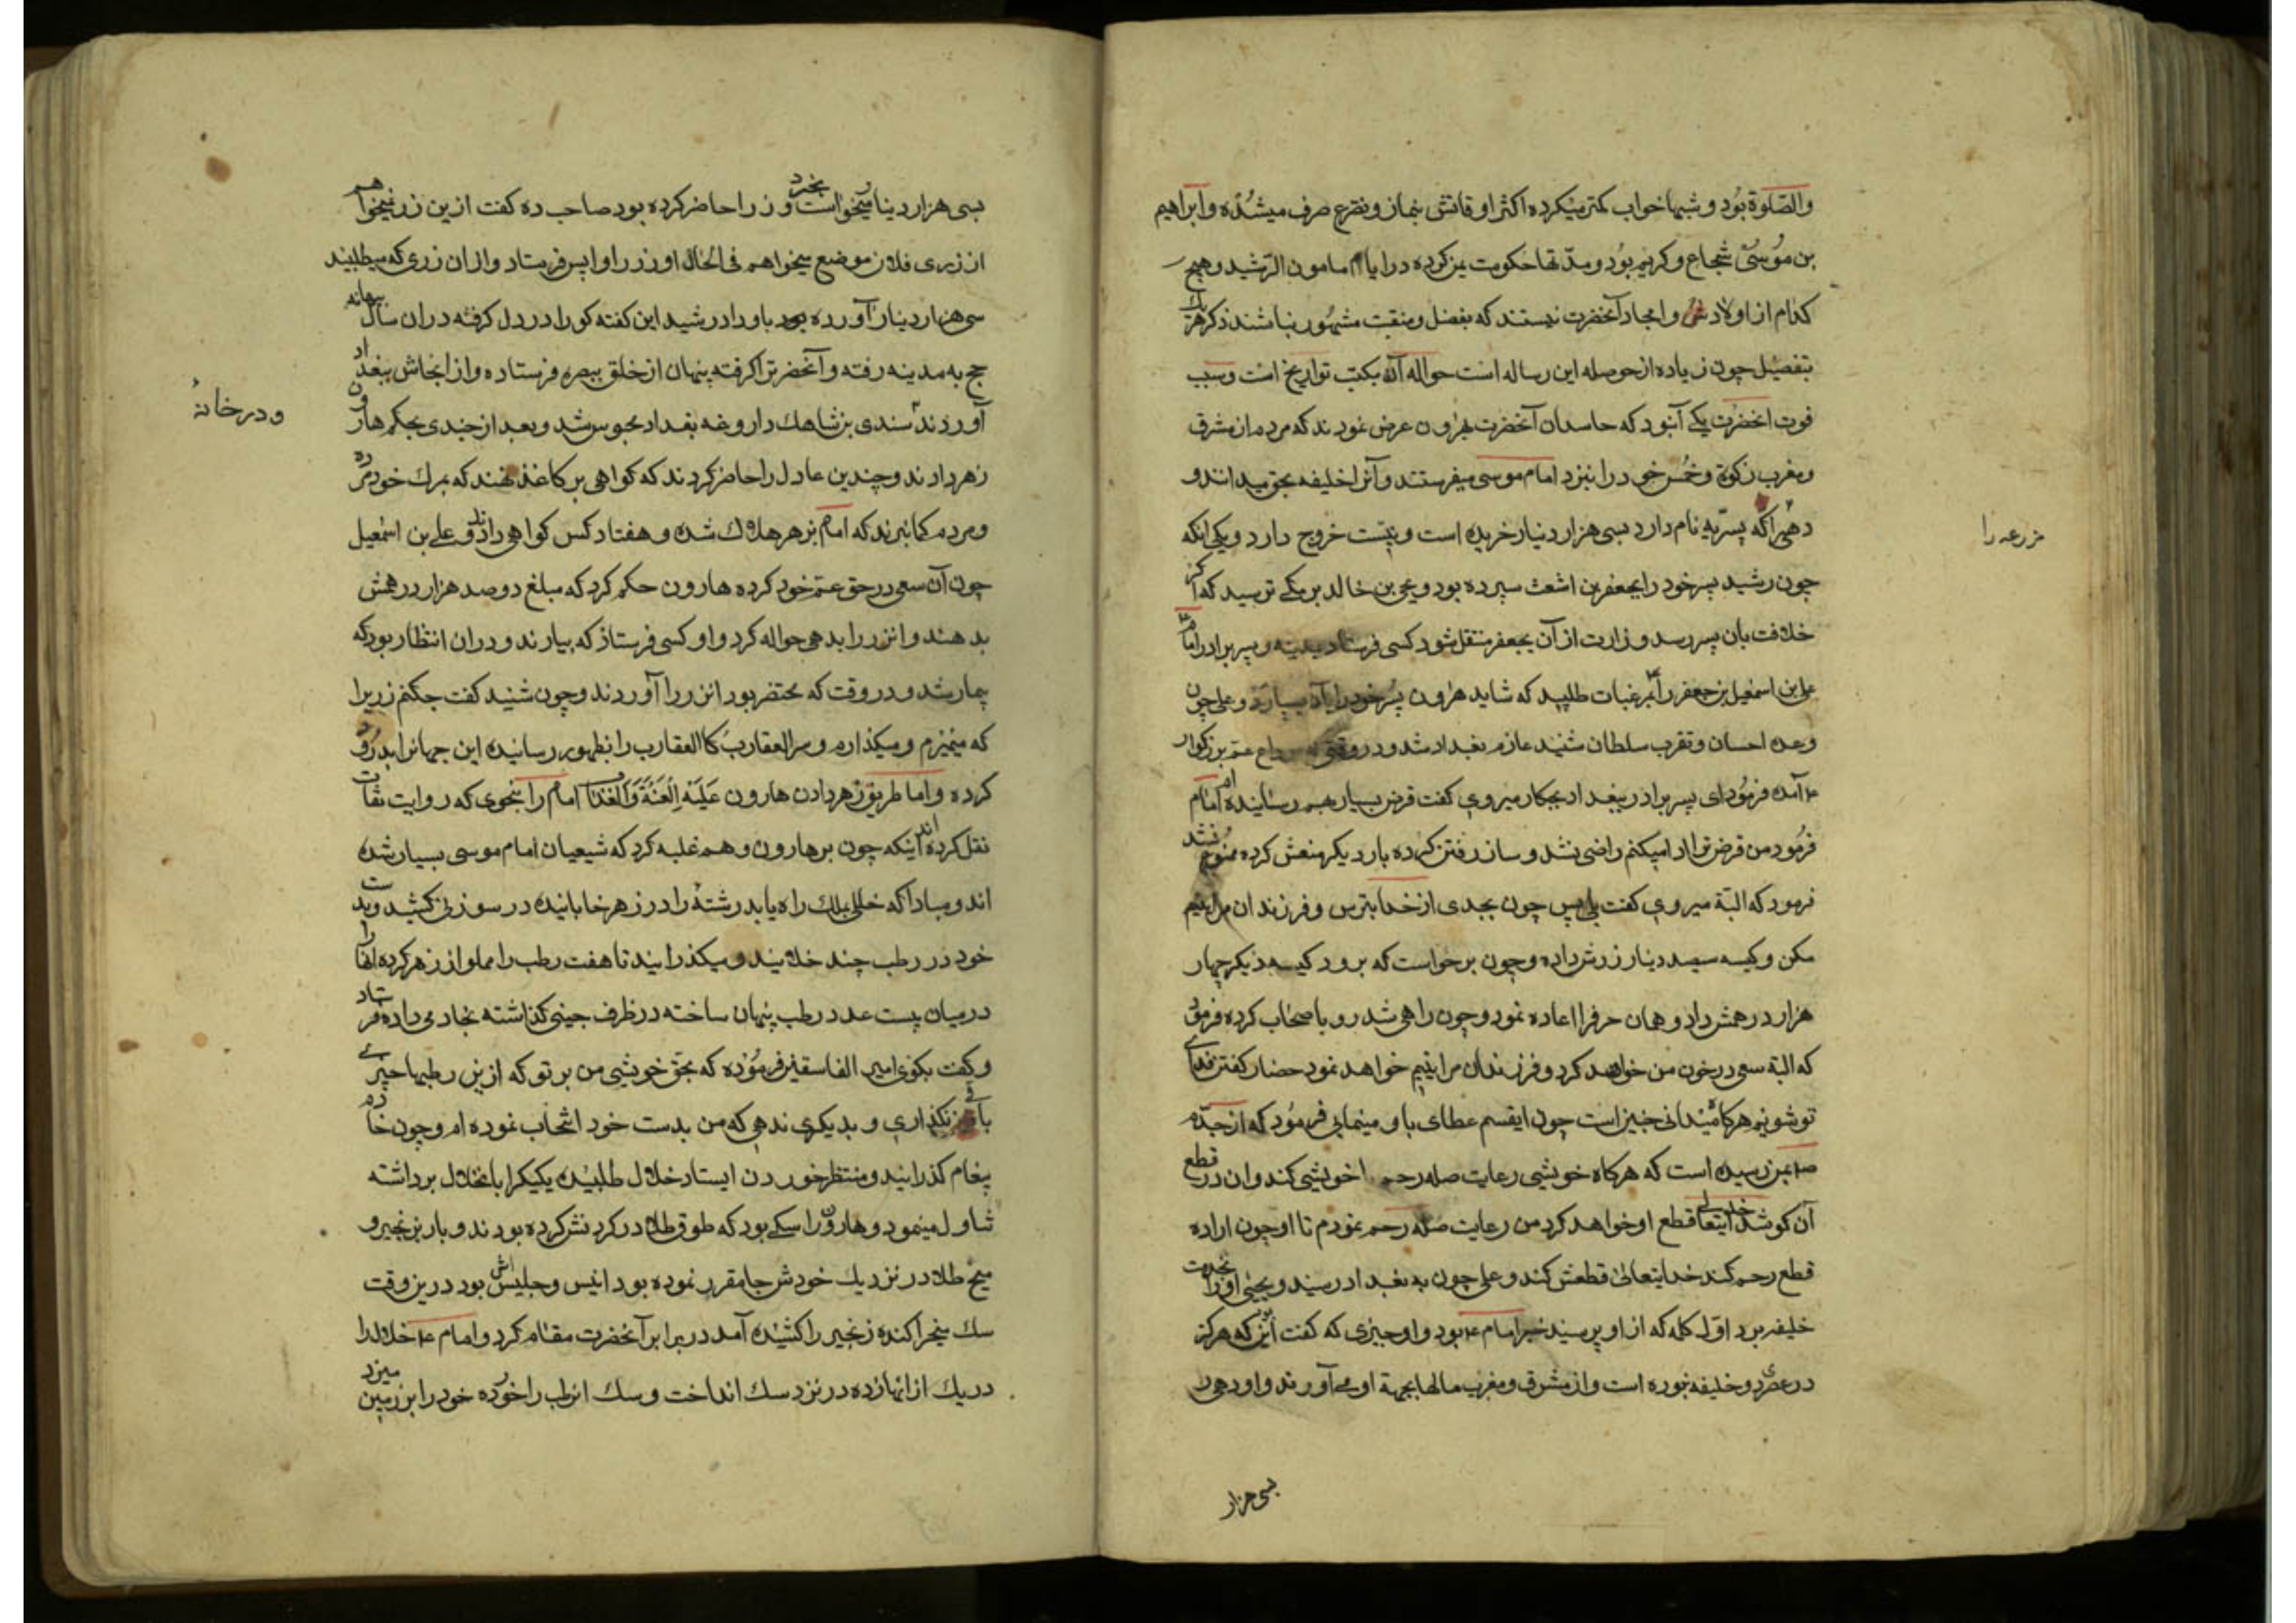 والصّلوة بود و شبها خواب کمتر میکرده اکثر اوقاتش بنماز و تضرع صرف میشده و ابراهیم
بن موسی شجاع و کریم بود و مدّتها حکومت یمن کرده در ایام مامون الرّشید و هیچ
کدام از اولاد و امجاد آنحضرت نیستند که بفضل و منقبت مشهور نباشند ذکر هر یک
بتفصیل چون زیاده از حوصله این رساله است حواله آن بکتب تواریخ است و سبب
فوت انحضرت یکی آنبود که حاسدان آنحضرت بهرون عرض نمودند که مردم از مشرق
و مغرب زکوة و خُمس خود را بنزد امام موسی میفرستند و آنرا خلیفه بحق میدانند و
مزرعه را
دهی را که یسریه نام دارد بسی هزار دینار خریده است و نیّت خروج دارد و یکی انکه
چون رشید پسر خود را بجعفر بن اشعث سپرده بود و یحیی بن خالد برمکی ترسید که اگر
خلافت بان پسر رسد وزارت از آن بجعفر منتقل شود کسی فرستاد بمدینه و پسر برادر امام
علی بن اسمعیل بن جعفر را طلبید که شاید هرون پسر خود را باو بسپارد و علی چون
وعده احسان و تقرب سلطان شنید عازم بغداد شد و در وقتی که بوداع عمّ بزرکوار
آمده فرمود ای پسر برادر ببغداد بچکار میروی کفت قرض بسیار بهم رسانیده ام امام
فرمود من قرض ترا ادا میکنم راضی نشد و ساز رفتن کرده بار دیکر منعش کرده ممنوع نشد
فرمود که البتّه میروی کفت بلی پس چون بجدی از خدا بترس و فرزندان مرا یتیم
مکن و کیسه سیصد دینار زرش داده و چون برخواست که برود کیسه دیکر چهار
هزار درهمش داد و همان حرف را اعاده نمود و چون راهی شد رو باصحاب کرده فرمود
که البتّه سعی در خون من خواهد کرد و فرزندان مرا یتیم خواهد نمود حضار کفتند فدای
تو شویم هرکاه میدانی چنین است چون اینقسم عطای باو مینمایی فرمود که از جدّم
بمن رسیده است که هرکاه خویشی رعایت صله رحم خویشی کند و ان در قطع
آن کوشد خدایتعالی قطع او خواهد کرد من رعایت صله رحم نمودم تا او چون اراده
قطع رحم کند خدایتعالی قطعش کند و علی چون به بغداد رسید و یحیی او را بخدمت
خلیفه برد اوّل کلمه که از او پرسید خبر امام بود و اوّل چیزی که کفت این بود که هرکز
در عصری دو خلیفه نبوده است و از مشرق و مغرب مالها بجهة او می آورند و او دهی
بسی هزار
بسی هزار دینار میخواست بخرد و زر را حاضر کرده بود صاحب ده کفت از این زر نمیخواهم
از زری فلان موضع میخواهم فی الحال او زر را واپس فرستاد و ازان زری که میطلبید
سی هزار دینار آورده باو داد رشید این کفته کو را در دل کرفته در ان سال ببهانه
حج به مدینه رفته و آنحضرت را کرفته پنهان از خلق ببصره فرستاده و از انجاش ببغداد
و در خانهٔ
آوردند سندی بن شاهک داروغه بغداد محبوس شد و بعد از چندی بحکم هارون
زهر دادند و چندین عادل را حاضر کردند که کواهی بر کاغذ نهند که بمرک خود مرده
و مردم کمان نبرند که امام بزهر هلاک شده و هفتاد کس کواهی دادند و علی بن اسمعیل
چون آن سعی در حق عمّ خود کرده هارون حکم کرد که مبلغ دوصد هزار درهمش
بدهند و انزر را بدهی حواله کرد و او کسی فرستاد که بیارند و در ان انتظار بود که
بیمار شد و در وقت که محتضر بود انزر را آوردند و چون شنید کفت چکنم زر را
که میمیرم و میکذارم و سرّ العقارب کالعقارب را بظهور رسانیده این جهانرا بدرود
کرده و اما طریق زهر دادن هارون علیه اللعنة والعذاب امام را بنحوی که روایت ثقات
نقل کرده اند اینکه چون بر هارون وهم غلبه کرد که شیعیان امام موسی بسیار شده
اند و مبادا که خللی بملک راه یابد رشتهٔ را در زهر خابانیده در سوزنی کشید و بدست
خود در رطب چند خلانید و میکذرانید تا هفت رطب را مملو از زهر کرده انها را
در میان بیست عدد رطب پنهان ساخته در ظرف چینی کذاشته بخادمی داده فرستاد
و کفت بکوی امیر الفاسقین فرموده که بحق خویشی من بر تو که ازین رطبها چیزی
باقی نکذاری و بدیکری ندهی که من بدست خود انتخاب نموده ام و چون خادم
پیغام کذرانید و منتظر خوردن ایستاد خلال طلبیده یکیکرا باخلال برداشته
تناول مینمود و هارون را سکی بود که طوق طلا در کردنش کرده بودند و بار زنجیر و
میخ طلا در نزدیک خودش جا مقرر نموده بود انیس و جلیس اش بود درین وقت
سک میخ را کنده زنجیر را کشیده آمد در برابر آنحضرت مقام کرد و امام خلال را
در یک از انها زده در نزد سک انداخت و سک انرطب را خورده خود را بر زمین میزد